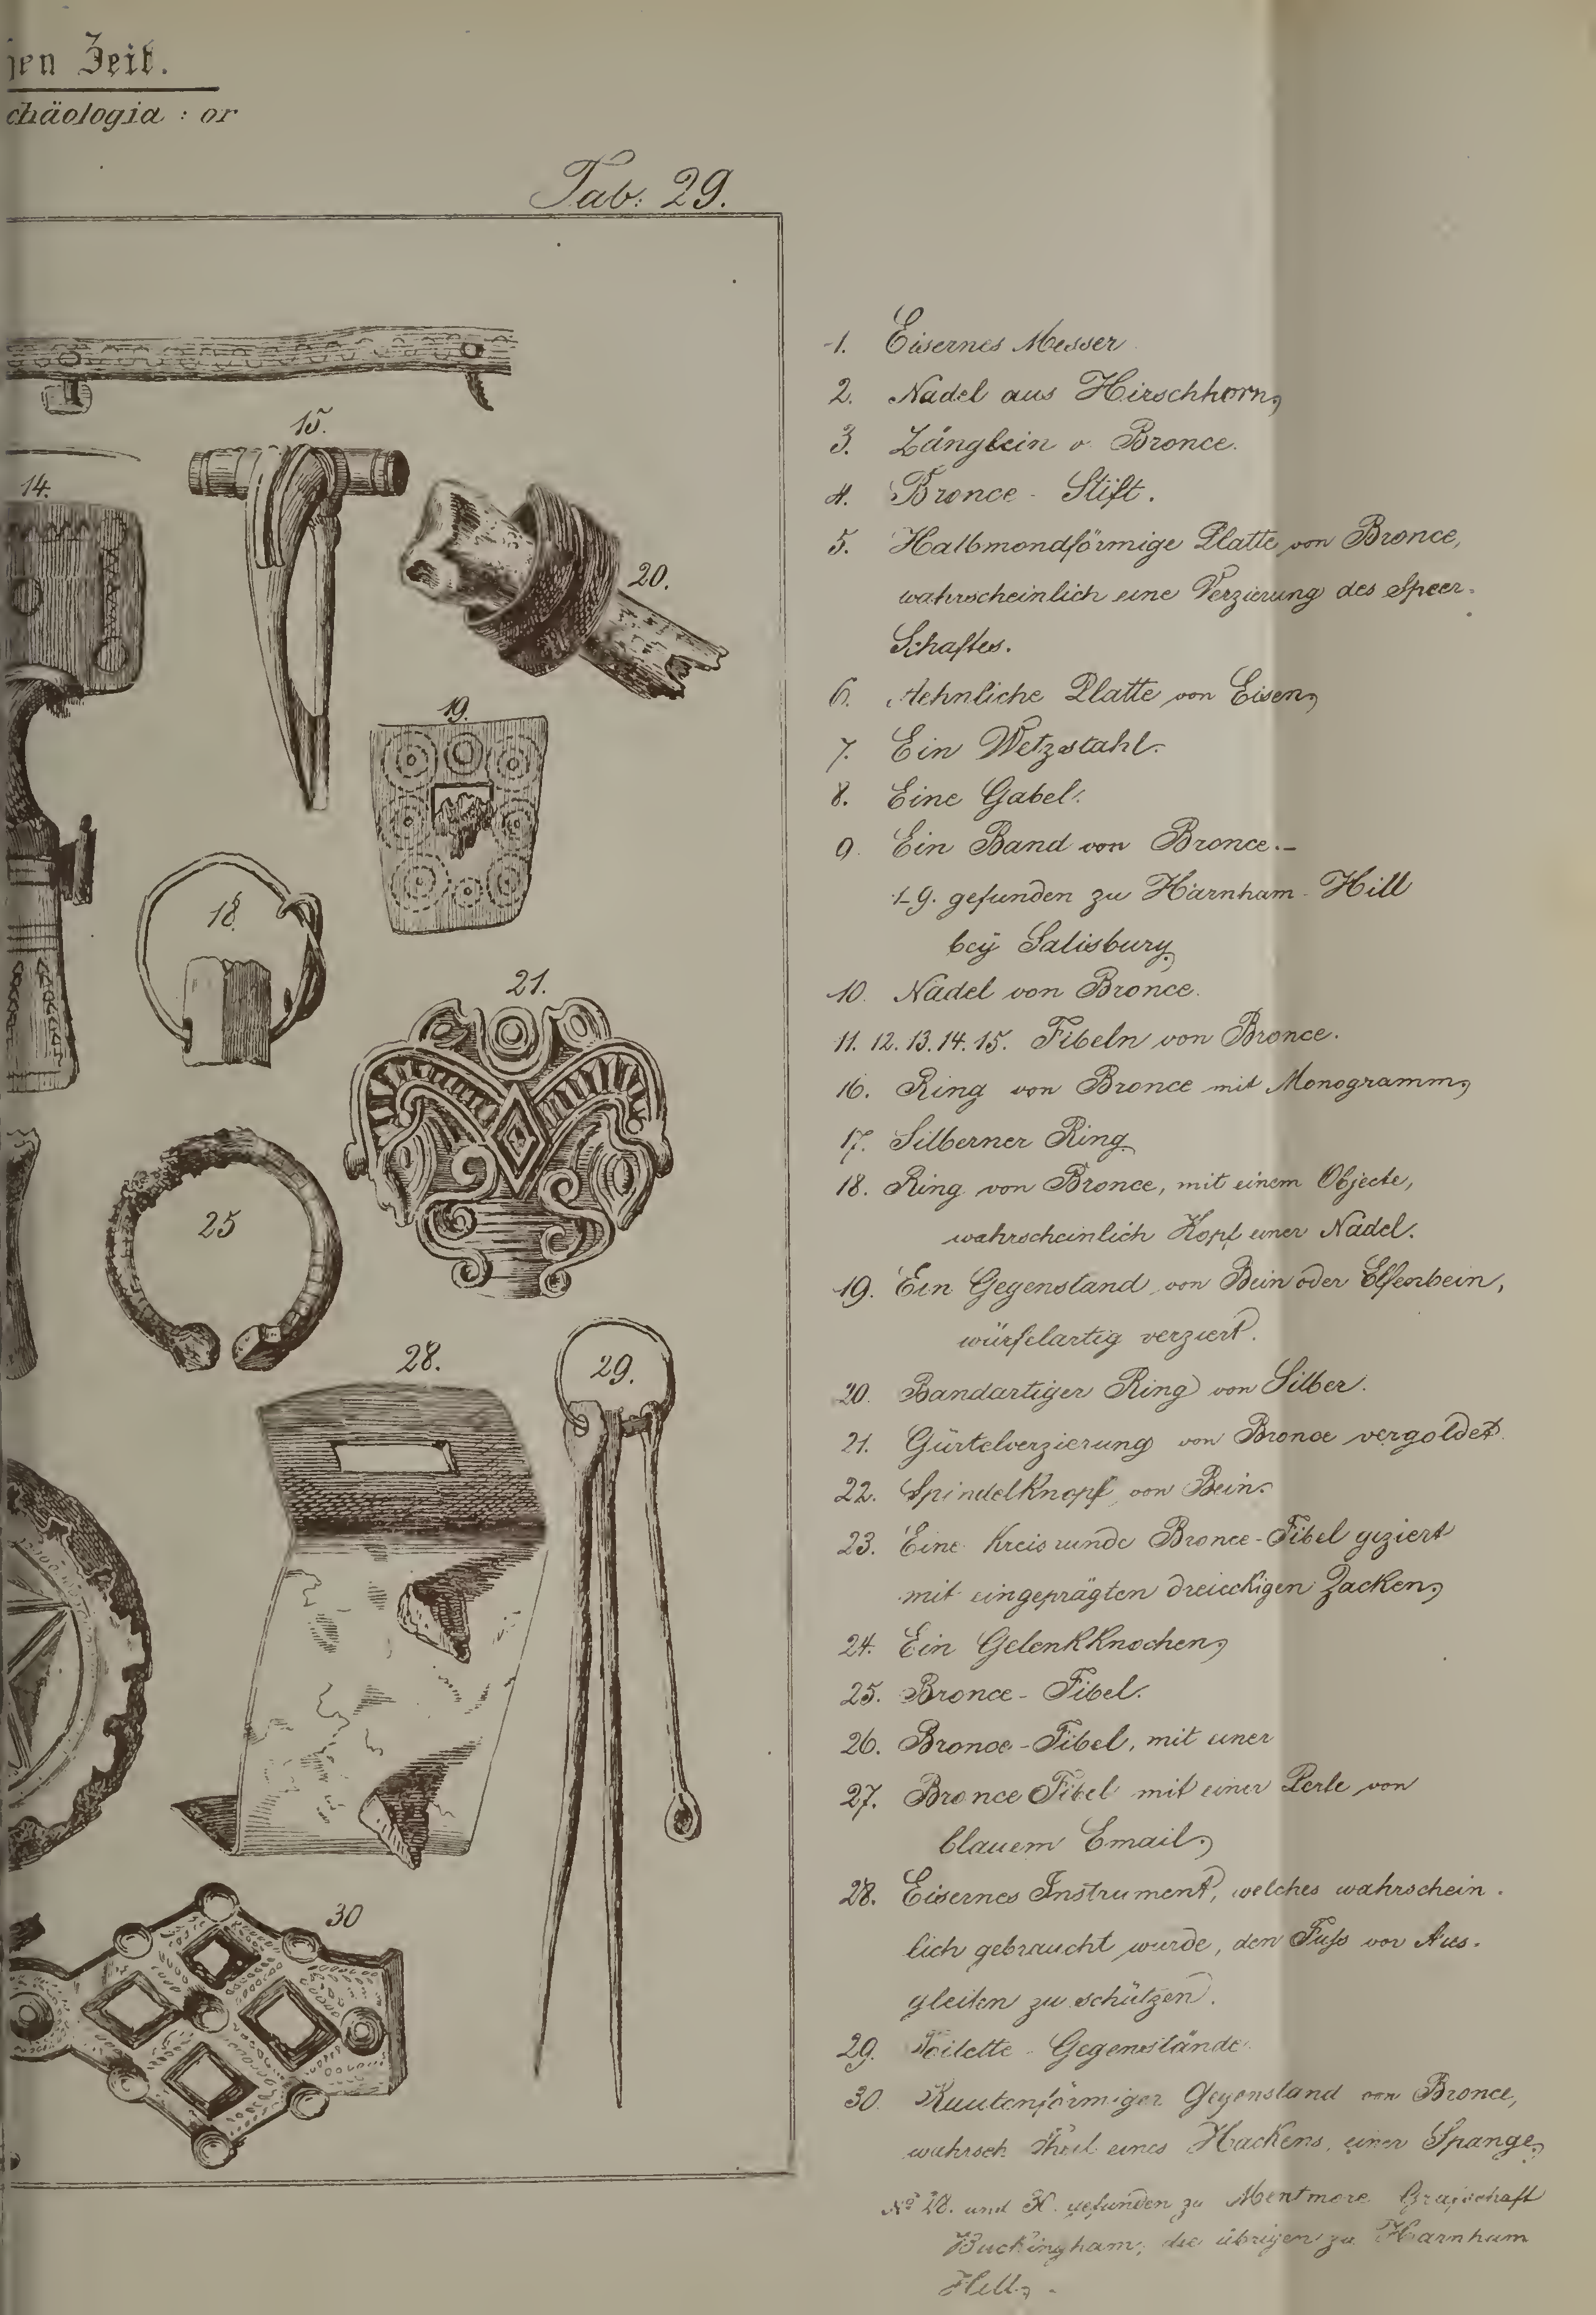 jen Zeit.
chäologia : or
Tab: 29.
15.
14.
20.
19.
18.
21.
25
28.
29.
30
1. Eisernes Messer
2. Nadel aus Hirschhorn,
3. Zänglein v. Bronce.
4. Bronce - Stift.
5. Halbmondförmige Platte von Bronce,
wahrscheinlich eine Verzierung des Speer-
Schaftes.
6. Aehnliche Platte von Eisen,
7. Ein Wetzstahl.
8. Eine Gabel.
9. Ein Band von Bronce.-
1-9. gefunden zu Harnham-Hill
beÿ Salisbury,
10. Nadel von Bronce.
11. 12. 13. 14. 15. Fibeln von Bronce.
16. Ring von Bronce mit Monogramm,
17. Silberner Ring.
18. Ring von Bronce, mit einem Objecte,
wahrscheinlich Kopf einer Nadel.
19. Ein Gegenstand von Bein oder Elfenbein,
würfelartig verziert.
20. Bandartiger Ring von Silber.
21. Gürtelverzierung von Bronce vergoldet.
22. Spindelknopf von Bein.
23. Eine Kreisrunde Bronce-Fibel geziert
mit eingeprägten dreieckigen Zacken,
24. Ein Gelenkknochen,
25. Bronce-Fibel.
26. Bronce-Fibel, mit einer
27. Bronce Fibel mit einer Perle von
blauem Email,
28. Eisernes Instrument, welches wahrschein-
lich gebraucht wurde, den Fuss vor Aus-
gleiten zu schützen.
29. Toilette - Gegenstände.
30. Rautenförmiger Gegenstand von Bronce,
wahrsch. Theil eines Hackens, einer Spange,
Nº 28. und 30. gefunden zu Mentmore Grafschaft
Buckingham, die übrigen zu Harnham
Hill, -